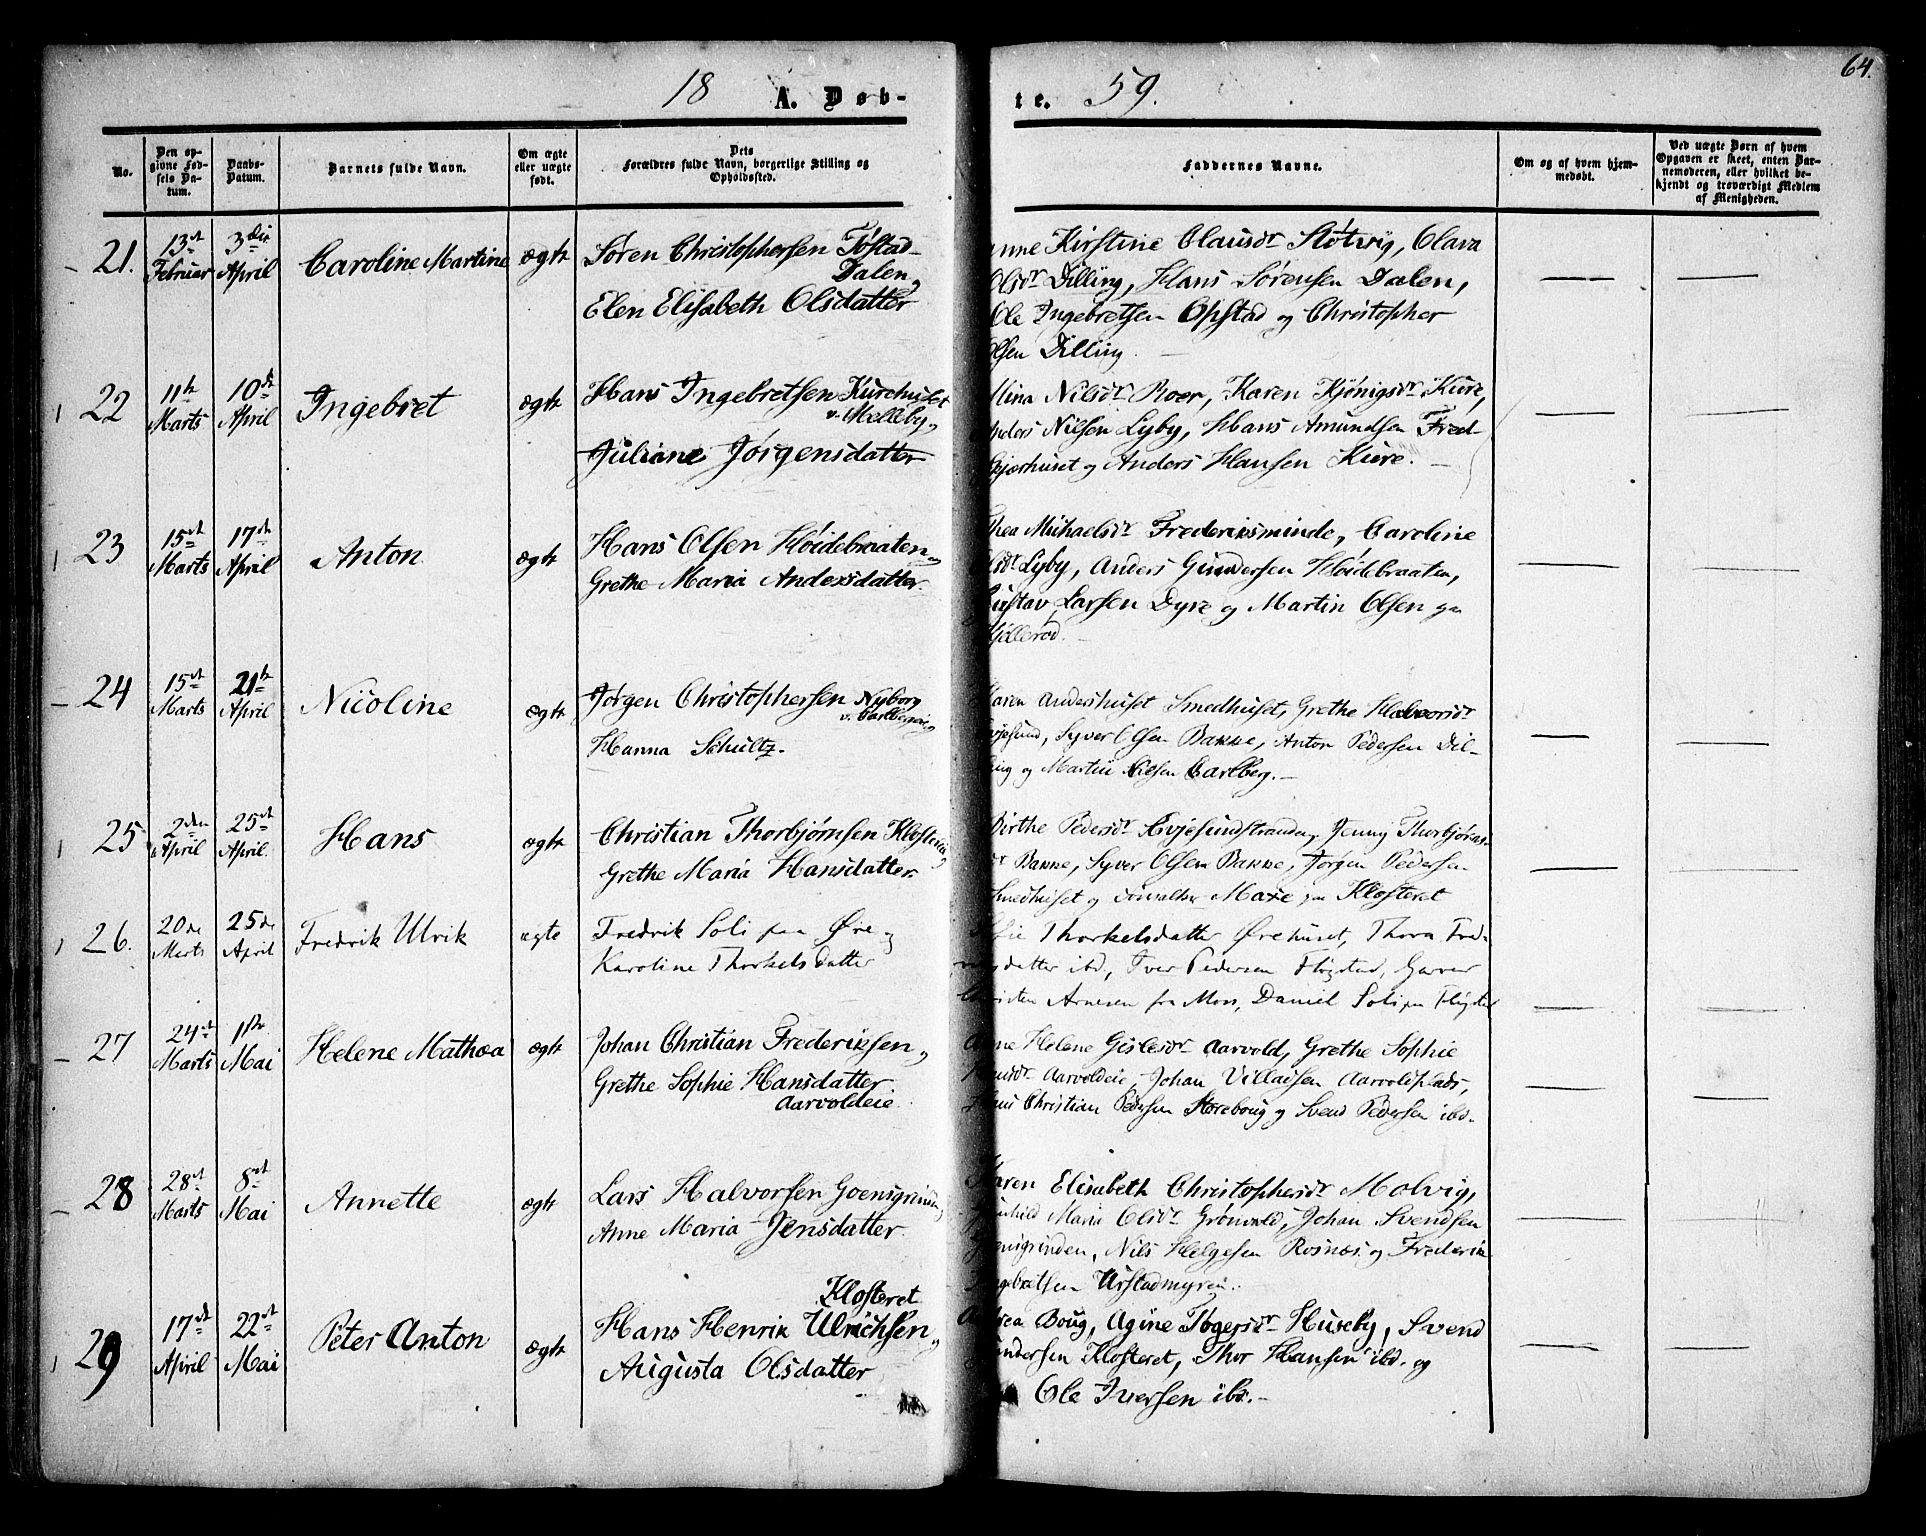 64.
18 A. Døb-
te. 59.
No.
Den op-
givne Fød-
sels Da-
tum.
Daabs-
Datum.
Barnets fulde Navn.
Om ægte
eller uægte
født.
Dets
Forældres fulde Navn, borgerlige Stilling og
Opholdssted.
Faddernes Navne.
Om og af hvem hjem-
medøbt.
Ved uægte Børn af hvem
Opgaven er skeet, enten Bar-
nemoderen, eller hvilket be-
kjendt og troværdigt Medlem
af Menigheden.
21. 13de Februar 3die April Caroline Martine ægte
Søren Christophersen Tøstad-
Dalen,
Elen Elisabeth Olsdatter
Kirstine Clausdr Støtvig, Olava
Olsdr Dilling, Hans Sørensen Dalen,
Ole Ingebretsen Opstad og Christopher
Olsen Dilling.
22 11te Marts 10de April Ingebret ægte
Hans Ingebretsen Kurehuset
v. Melleby,
Juliane Jørgensdatter
Nilsdr Roer, Karen Kjønigsdr Kure,
Nilsen Lyby, Hans Amundsen Fred-
og Anders Hansen Kure.
23 15de Marts 17de April Anton ægte
Hans Olsen Høidebraaten
Grethe Maria Andersdatter
Thea Michaelsdr Frederiksminde, Caroline
Lyby, Anders Gundersen Høidebraaten,
Gustav Larsen Dyre og Martin Olsen paa

24 15de Marts 21te April Nicoline ægte
Jørgen Christophersen Nyborg
v. Carlbergeie
Hanna Schultz.
Karen Andershuset Smedhuset, Grethe Halvorsdr
Syver Olsen Bakke, Anton Pedersen Dil-
ling og Martin Nilsen Carlberg.
25 2den April 25de April. Hans ægte
Christian Thorbjørnsen Klosteret
Grethe Maria Hansdatter
Birthe Pedersdr Evjesundstranden, Jenny Thorbjørns-
dr Bakke, Syver Olsen Bakke, Jørgen Pedersen
Smedhuset og paa Klosteret
26. 20de Marts 25de April Fredrik Ulrik ægte
Fredrik Soli paa Øre og
Karoline Thorkelsdatter
Thorkelsdatter Ørehuset, Thora Fred-
datter ibd, Iver Pedersen Fløgstad, Garver
Arnesen fra Mos, Daniel Soli paa
27 24de Marts 1ste Mai Helene Mathea ægte
Johan Christian Frederiksen,
Grethe Sophie Hansdatter
Aarvoldeie
Helene Gislesdr Aarvold, Grethe Sophie
Aarvoldeie, Johan Aarvoldplads,
Christian Pedersen Storeboug og Svend Pedersen ibd.
28 28de Marts 8de Mai Annette ægte
Lars Halvorsen Goensgrinden
Anne Maria Jensdatter
Karen Elisabeth Christophersdr Molvig,
Maria Olsdr Grønvold, Johan Svendsen
Nils Helgesen Rosnæs og Frederik
Ingebretsen Urstadmyren.
29 17de April 22de Mai Peter Anton ægte
Klosteret
Hans Henrik Ulrichsen,
Augusta Olsdatter
Boug, Agine Tøgersdr Huseby, Svend
Gundersen Klosteret, Thor Hansen ibd. og
Ole Iversen ibd.